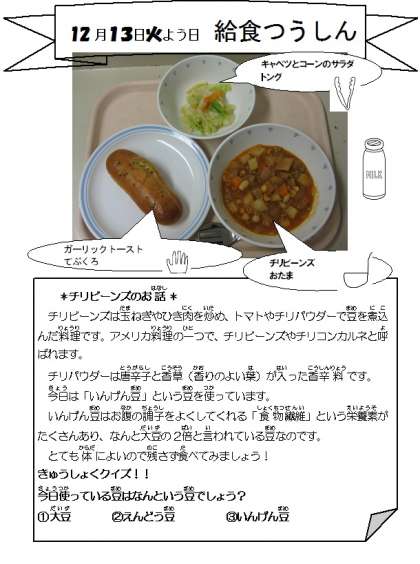 12月13日火よう日 給食つうしん
キャベツとコーンのサラダ
トング
MILK
ガーリックトースト
てぶくろ
チリビーンズ
おたま
*チリビーンズのお話*
チリビーンズは玉ねぎやひき肉を炒め、トマトやチリパウダーで豆を煮込
んだ料理です。アメリカ料理の一つで、チリビーンズやチリコンカルネと呼
ばれます。
チリパウダーは唐辛子と香草（香りのよい葉）が入った香辛料です。
今日は「いんげん豆」という豆を使っています。
いんげん豆はお腹の調子をよくしてくれる「食物繊維」という栄養素が
たくさんあり、なんと大豆の２倍と言われている豆なのです。
とても体によいので残さず食べてみましょう！
きゅうしょくクイズ！！
今日使っている豆はなんという豆でしょう？
①大豆 ②えんどう豆 ③いんげん豆